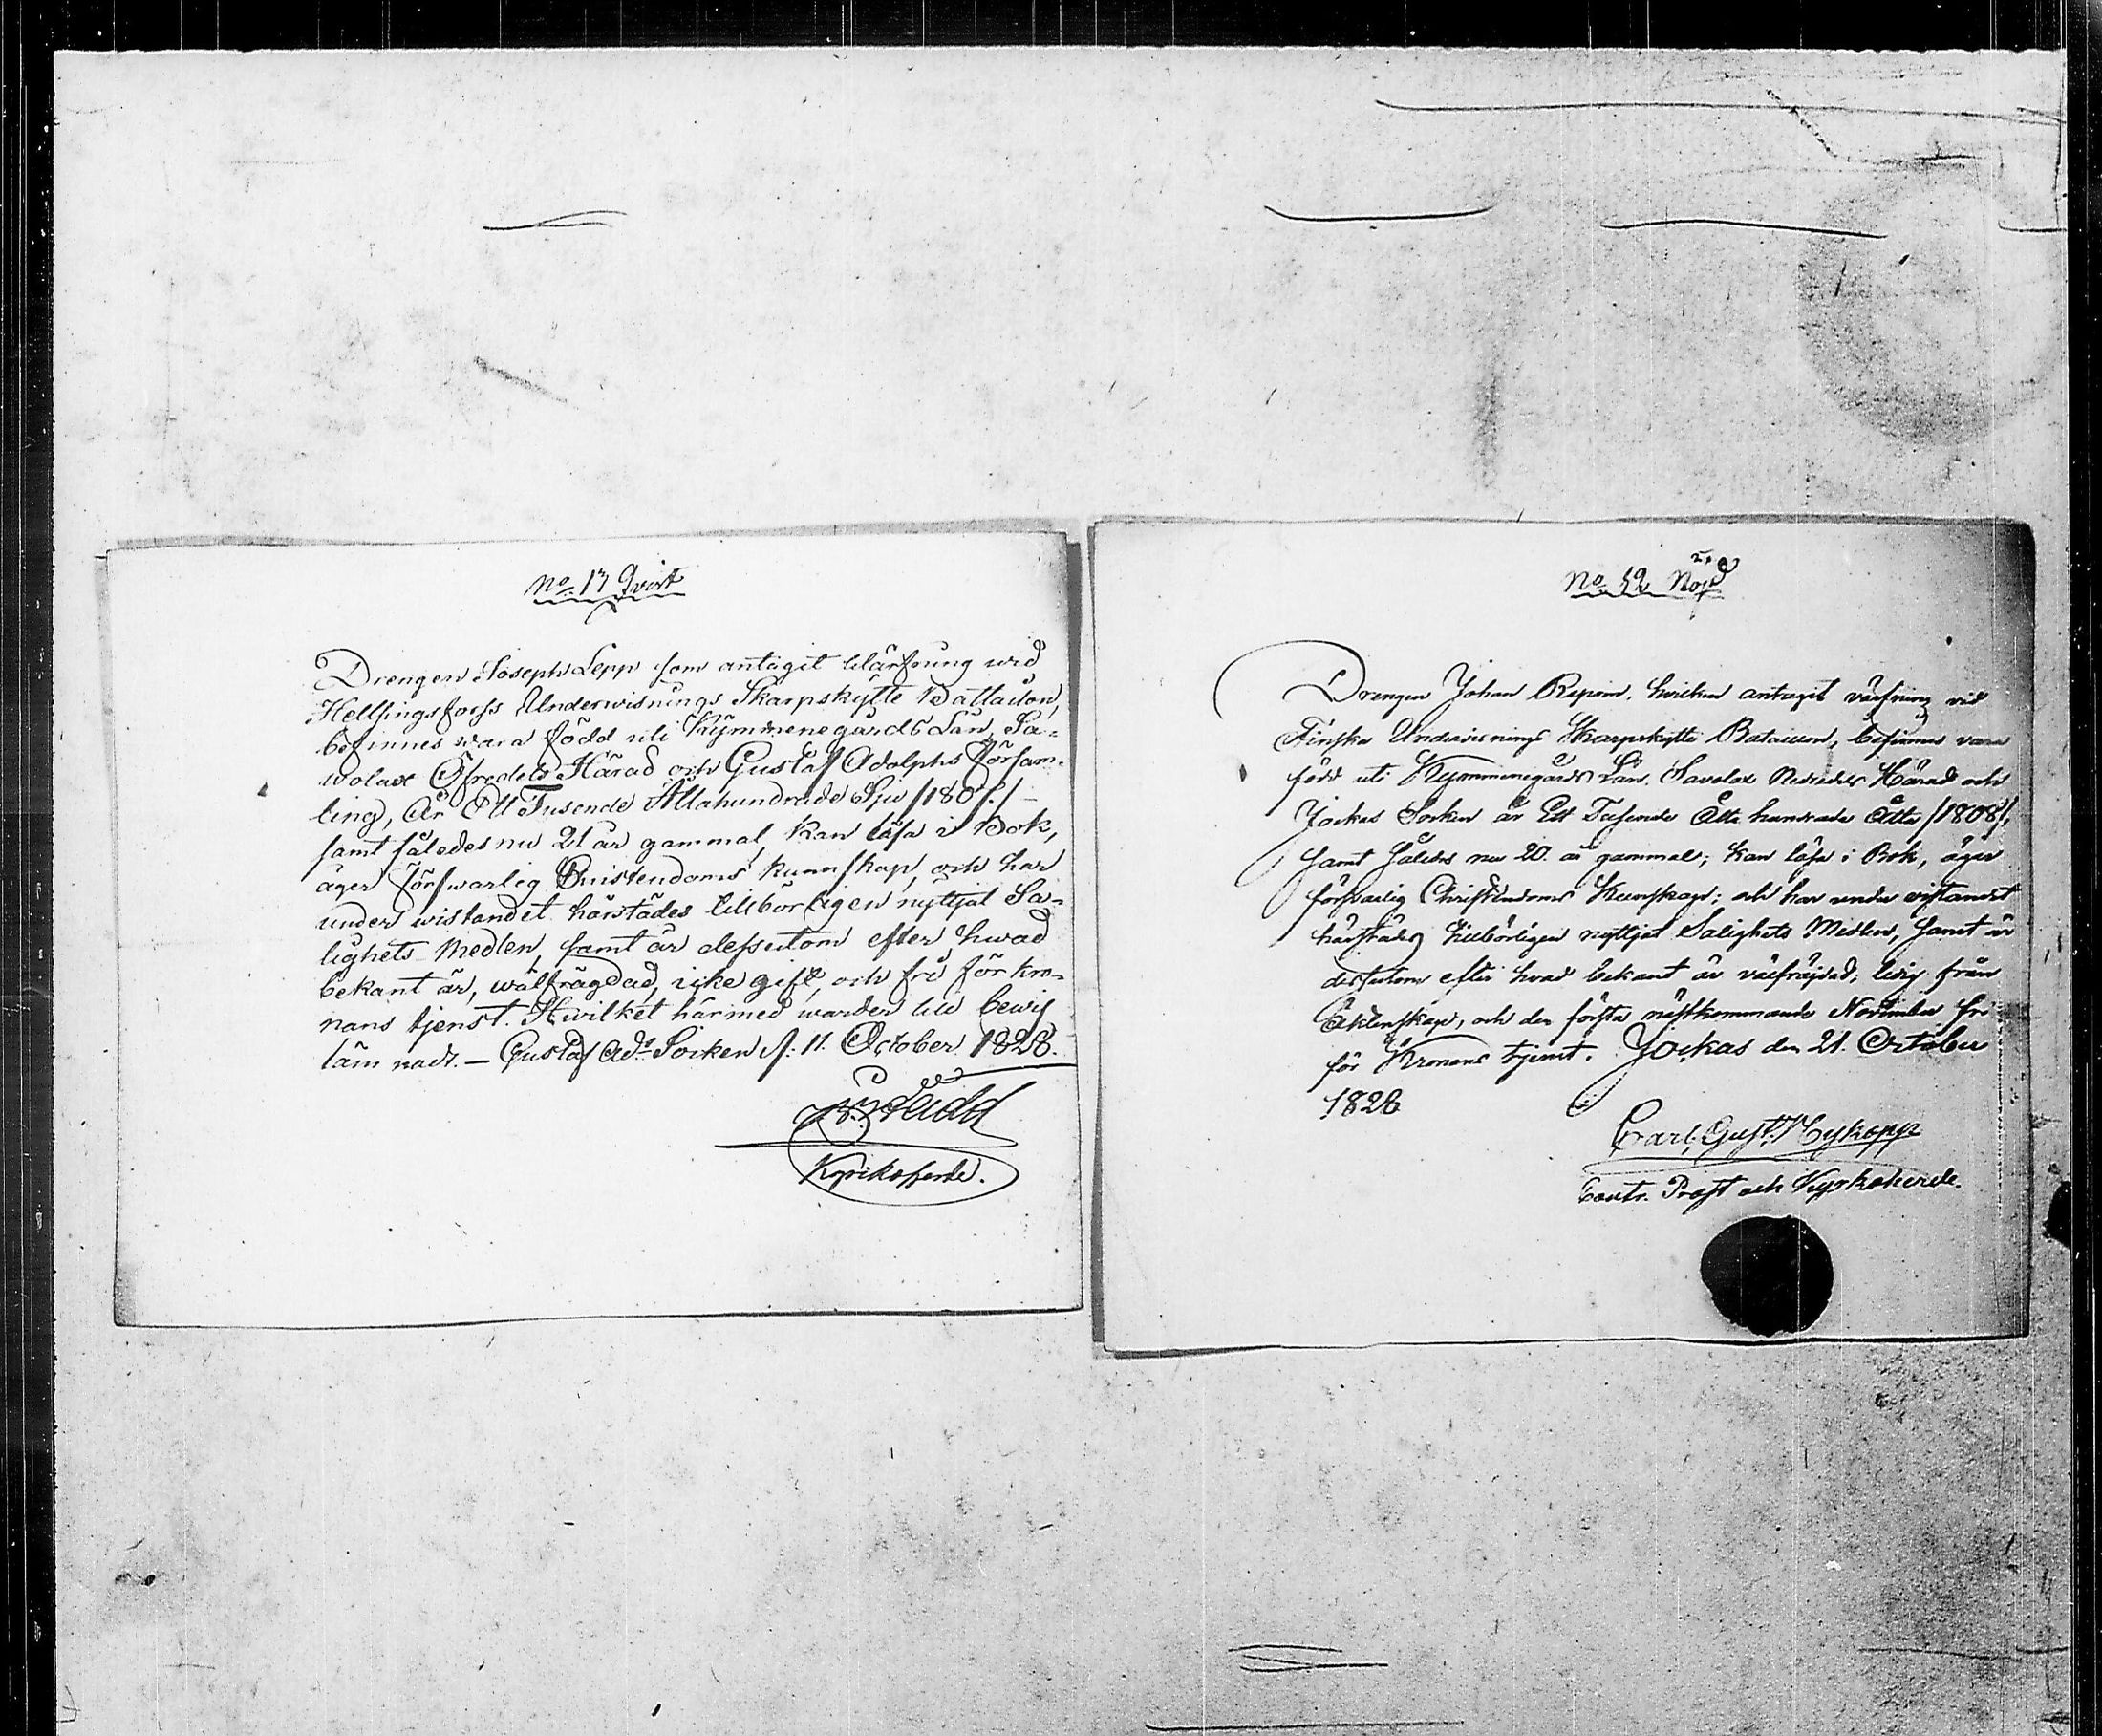 No 17 Qvist
Drengen Joseph Lepp som antagit Wärfning wid
Hellsingsforss Underwisnings Skarpskytte Battailon,
befinnes wara född uti Kymmenegårds Län, Sa-
wolax Öfredels Härad och Gustaf Adolphs Försam-
ling, År Ett Tusende Åttahundrade Sju /1807./ -
samt således nu 21 år gammal, kan läsa i Bok,
äger förswarlig Christendoms kunskap, och har
under wistandet härstädes tillbörligen nyttjat Sa-
lighets Medlen, samt är dessutom efter hwad
bekant är, wälfrägdad, icke gift, och fri för kro-
nans tjenst. Hwilket härmed warder till bewis
lämnadt. — Gustaf Ad:s Socken d: 11 October 1828.
Kyrkoherde.
No 52 Nöjd
Drengen Johan Repoin, hvilken antagit värfning vid
Finska Undervisnings Skarpskytte Bataillon, befinnes vara
född uti Kymmenegårds Län, Savolax Nedredels Härad och
Jockas Socken år Ett Tusende Åtta hundrade Åtta /1808/,
samt således nu 20 år gammal; kan läsa i Bok, äger
försvarlig Christendoms Kunskap; och har under vistandet
härstädes tillbörligen nyttjat Salighets Medlen, samt är
dessutom efter hvad bekant är välfräjdad, ledig från
Äktenskap, och den första nästkommande November fri
för Kronans tjenst. Jockas den 21. October
1828
Carl Gust. Mykopp
Contr. Prost och Kyrkoherde.